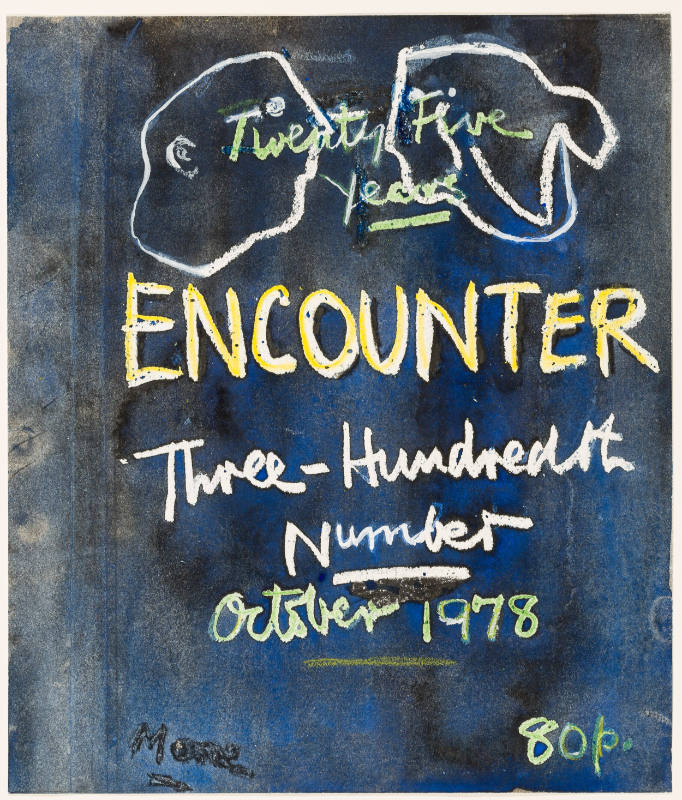 Twenty Five
Years
ENCOUNTER
Three-Hundredth
Number
October 1978
Moore
80p.